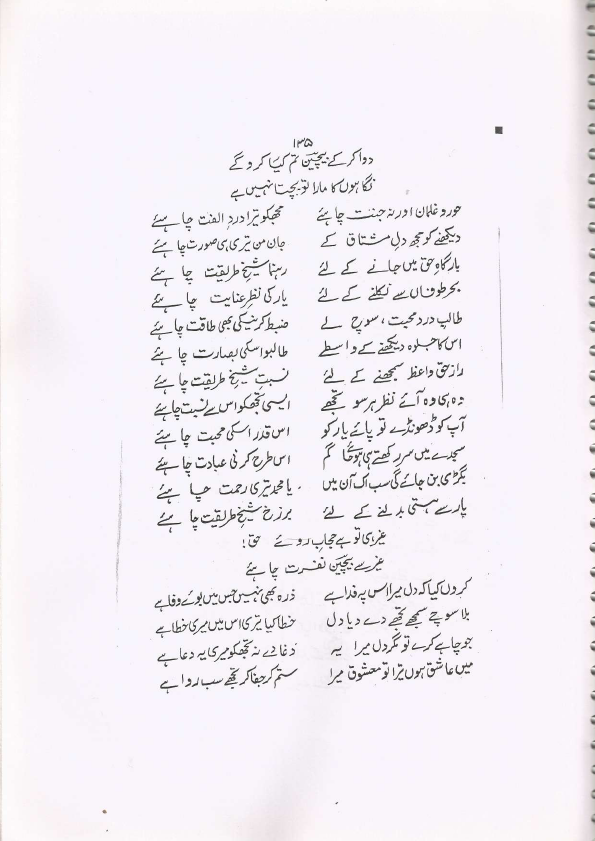 ۱۳۵
دوا کرکے بیچین تم کیا کروگے
نگاہوں کا مارا تو بچتا نہیں ہے
حور و غلمان اور نہ جنت چاہئے مجھکو تیرا دردِ الفت چاہئے
دیکھنے کو مجھ دلِ مشتاق کے جان من تیری ہی صورت چاہئے
بارگاہِ حق میں جانے کے لئے رہنما شیخِ طریقت چاہئے
بحرِ طوفاں سے نکلنے کے لئے یار کی نظرِ عنایت چاہئے
طالبِ دردِ محبت، سوچ لے ضبط کرنیکی بھی طاقت چاہئے
اس کا جلوہ دیکھنے کے واسطے طالبو اسکی بصارت چاہئے
رازِ حق واعظ سمجھنے کے لئے نسبتِ شیخِ طریقت چاہئے
وہ ہی وہ آئے نظر ہر سو تجھے ایسی تجھکو اس سے نسبت چاہئے
آپ کو ڈھونڈے تو پائے یار کو اس قدر اسکی محبت چاہئے
سجدے میں سر رکھتے ہی ہو جا گم اس طرح کرنی عبادت چاہئے
بگڑی بن جائے گی سب اک آن میں یا محمد تیری رحمت چاہئے
پار سے ہستی بدلنے کے لئے برزخِ شیخِ طریقت چاہئے
غیر ہی تو ہے حجابِ روئے حق!
غیر سے بیچین نفرت چاہئے
کروں کیا کہ دل میرا اس پہ فدا ہے ذرہ بھی نہیں جس میں بوئے وفا ہے
بلا سوچے سمجھے تجھے دے دیا دل خطا کیا تیری اس میں میری خطا ہے
جو چاہے کرے تو مگر دل میرا یہ دغا دے نہ تجھکو میری یہ دعا ہے
میں عاشق ہوں تیرا تو معشوق میرا ستم کر جفا کر تجھے سب روا ہے